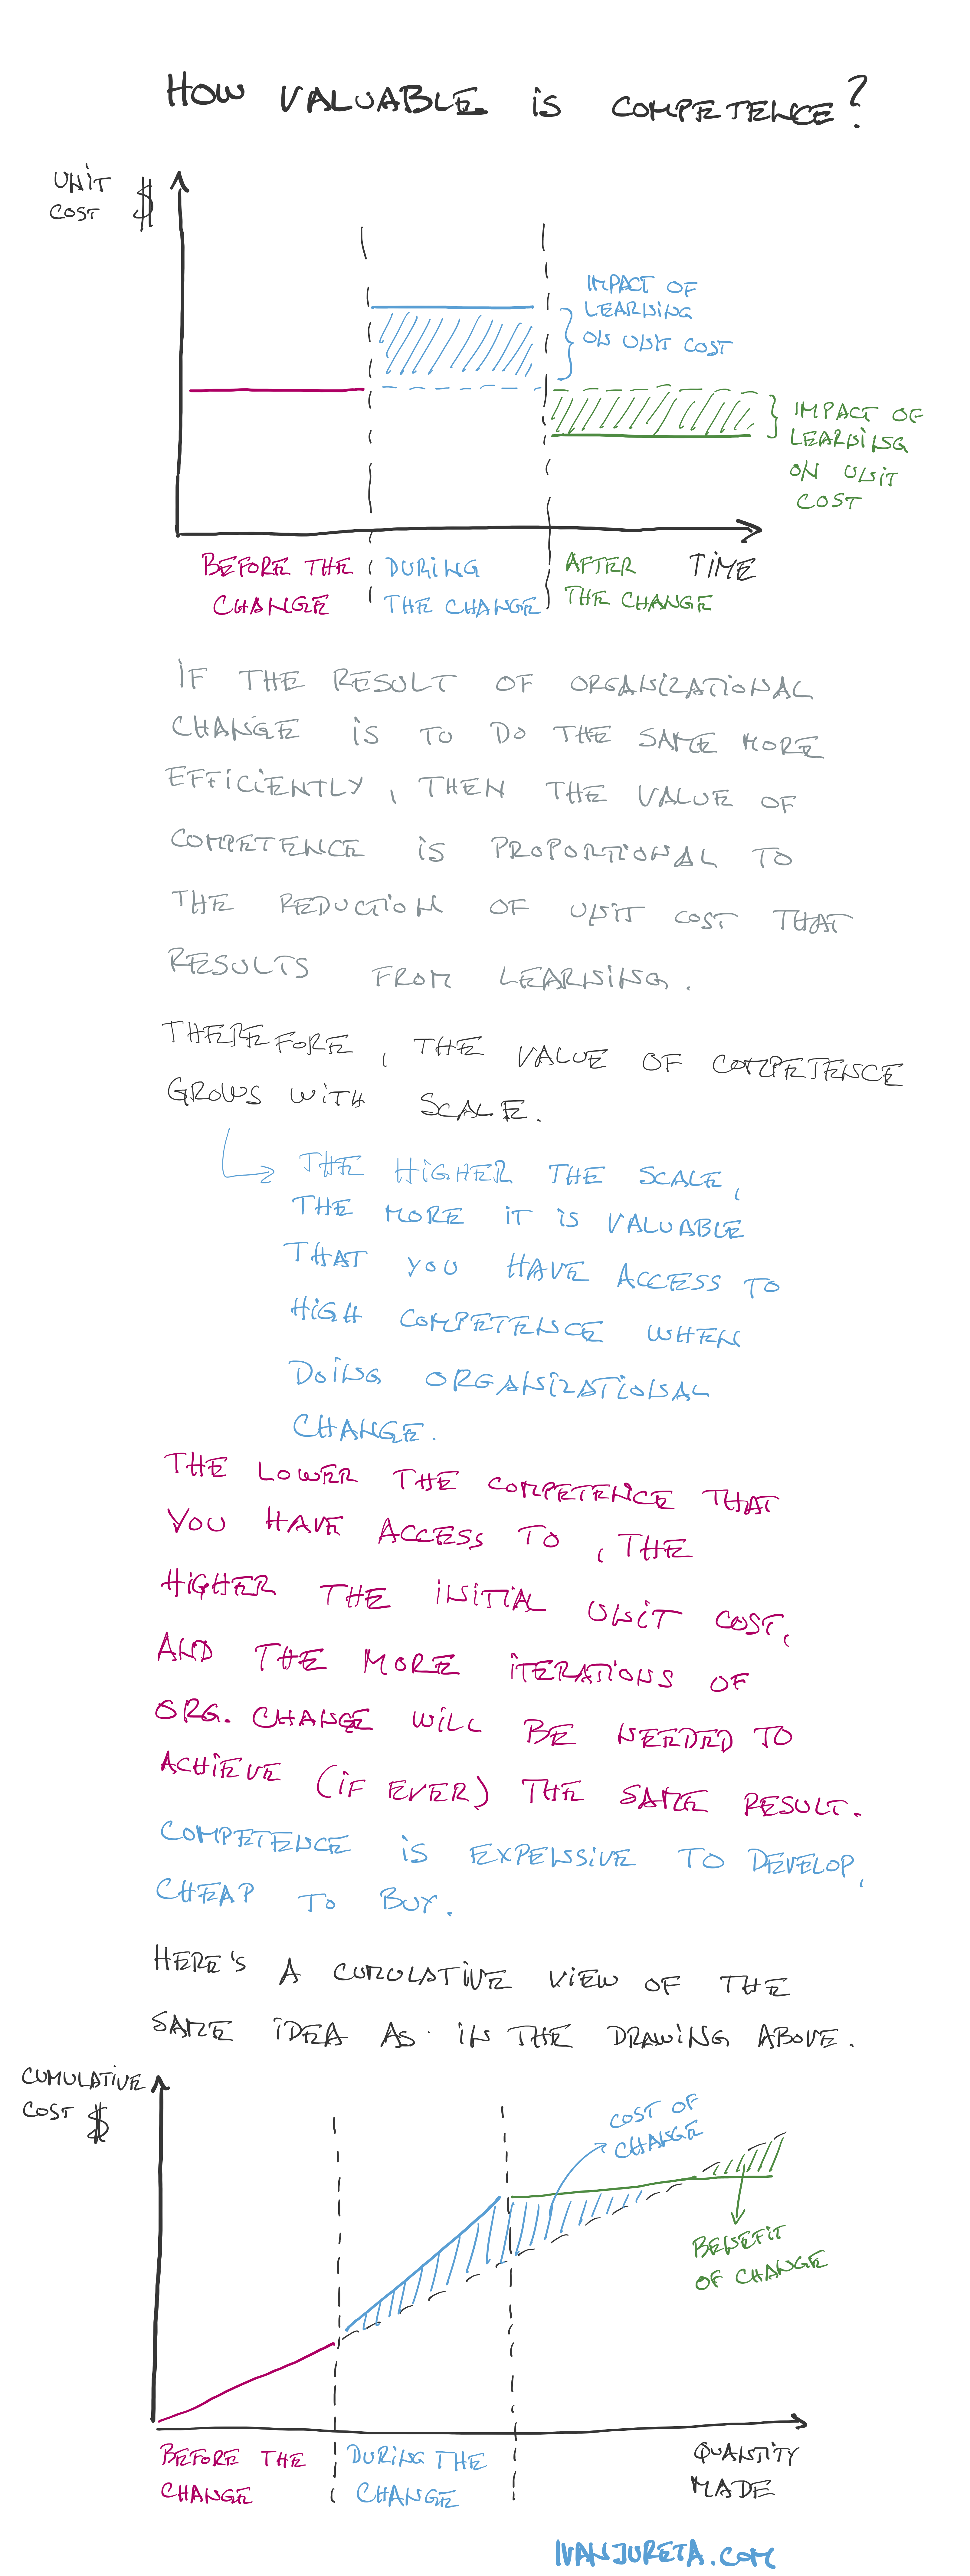 HOW VALUABLE IS COMPETENCE?
UNIT
COST $
IMPACT OF
LEARNING
ON UNIT COST
IMPACT OF
LEARNING
ON UNIT
COST
BEFORE THE
CHANGE
DURING
THE CHANGE
AFTER
THE CHANGE
TIME
IF THE RESULT OF ORGANIZATIONAL
CHANGE IS TO DO THE SAME MORE
EFFICIENTLY, THEN THE VALUE OF
COMPETENCE IS PROPORTIONAL TO
THE REDUCTION OF UNIT COST THAT
RESULTS FROM LEARNING.
THEREFORE, THE VALUE OF COMPETENCE
GROWS WITH SCALE.
THE HIGHER THE SCALE,
THE MORE IT IS VALUABLE
THAT YOU HAVE ACCESS TO
HIGH COMPETENCE WHEN
DOING ORGANIZATIONAL
CHANGE.
THE LOWER THE COMPETENCE THAT
YOU HAVE ACCESS TO, THE
HIGHER THE INITIAL UNIT COST,
AND THE MORE ITERATIONS OF
ORG. CHANGE WILL BE NEEDED TO
ACHIEVE (IF EVER) THE SAME RESULT.
COMPETENCE IS EXPENSIVE TO DEVELOP,
CHEAP TO BUY.
HERE'S A CUMULATIVE VIEW OF THE
SAME IDEA AS IN THE DRAWING ABOVE.
CUMULATIVE
COST $
COST OF
CHANGE
BENEFIT
OF CHANGE
BEFORE THE
CHANGE
DURING THE
CHANGE
QUANTITY
MADE
IVANJURETA.COM